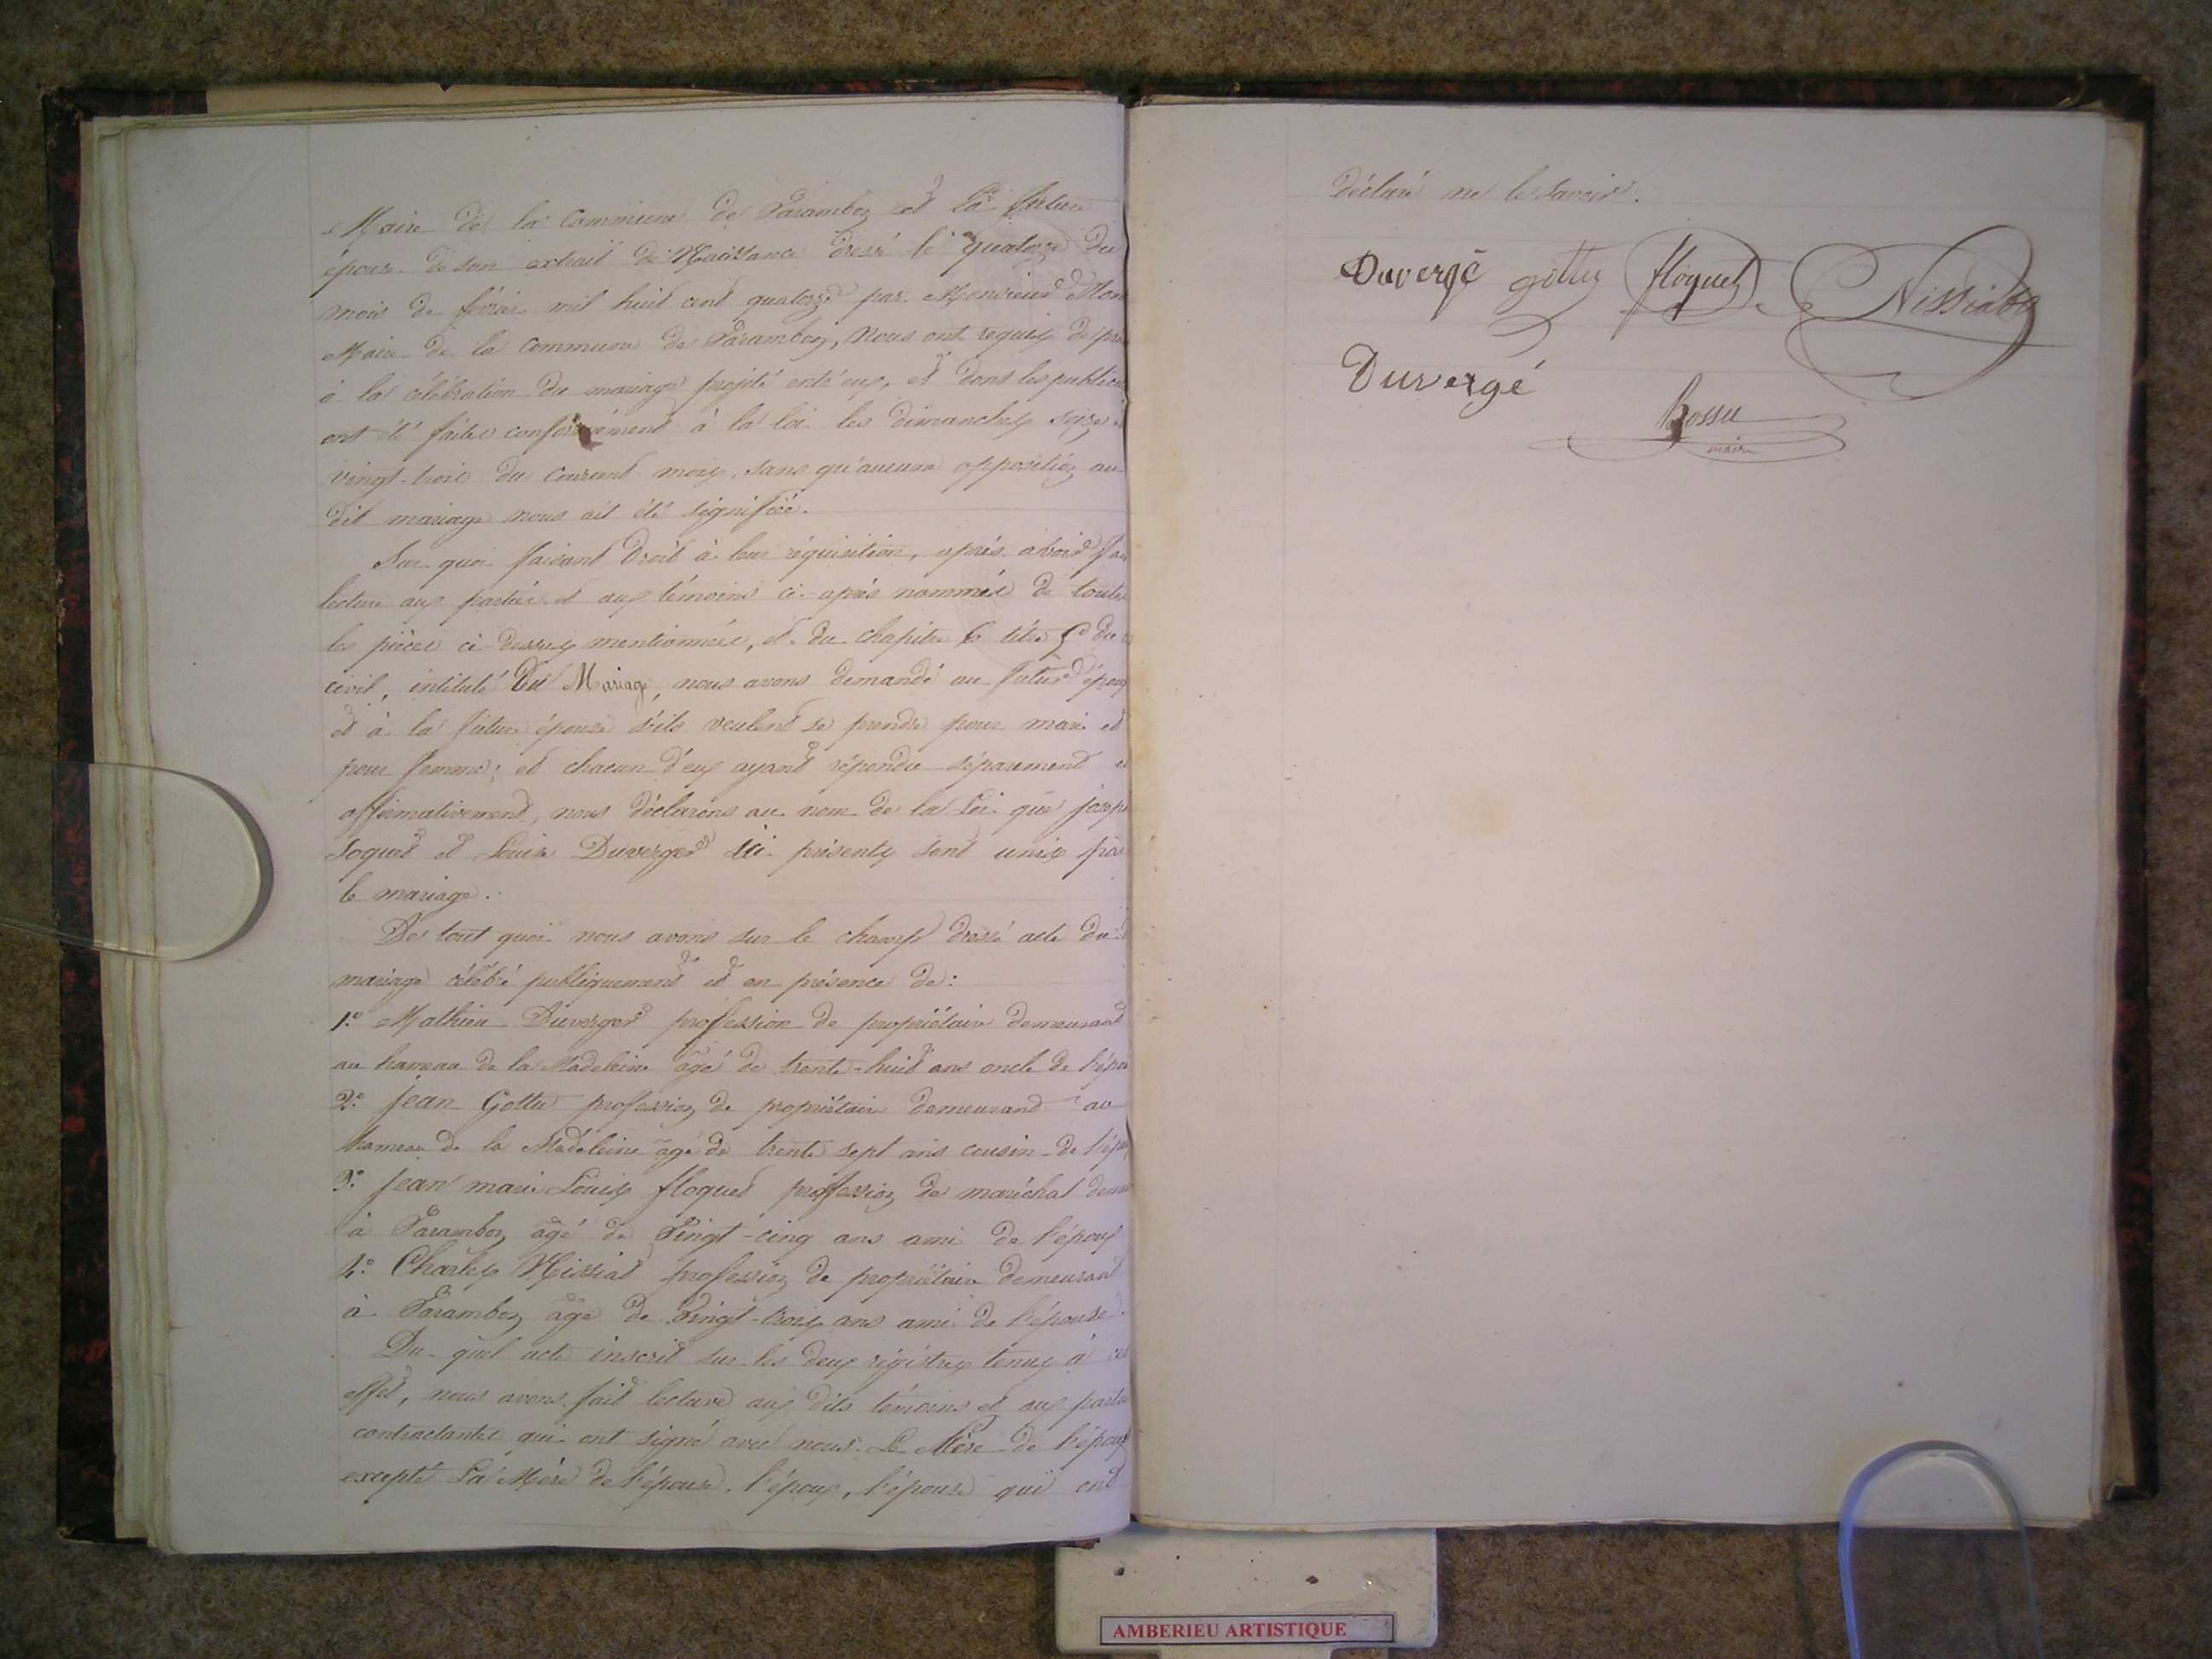 Maire de la commune de Parambos et la future
épouse de son extrait de Naissance dressé le quatorze du
mois de février mil huit cent quatorze par Monsieur
Maire de la commune de Parambos, Nous ont requis de
à la célébration du mariage projeté entr'eux, et dont les
ont été faites conformément à la loi les dimanches seize
vingt-trois du courant mois, sans qu'aucune opposition au
dit mariage nous ait été signifiée.
Sur quoi faisant droit à leur réquisition, après avoir
lecture aux parties et aux témoins ci-après nommés de toutes
les pièces ci-dessus mentionnées, et du chapitre 6 titre du
civil, intitulé Du Mariage, nous avons demandé au futur époux
et à la future épouse s'ils veulent se prendre pour mari et
pour femme; et chacun d'eux ayant répondu séparement
affirmativement, nous déclarons au nom de la Loi que
et Louise Duverger ici présents sont unis par
le mariage.
De tout quoi nous avons sur le champ dressé acte du
mariage célébré publiquement et en présence de:
1.° Mathieu Duverger profession de propriétaire demeurant
au hameau de la Madeleine âgé de trente-huit ans oncle de
2.° Jean Gottu profession de propriétaire demeurant au
hameau de la Madeleine âgé de trente sept ans cousin de
3.° Jean marie Louis floquet profession de maréchal
à Parambos âgé de Vingt-cinq ans ami de l'époux
4.° Charles Nissiat profession de propriétaire demeurant
à Parambos âgé de Vingt-trois ans ami de l'épouse.
Du quel acte inscrit sur les deux régistres tenus à
effet, nous avons fait lecture aux dits témoins et aux
contractantes qui ont signé avec nous. Le Père de l'époux
excepté La Mère de l'épouse, l'époux, l'épouse qui ont
déclaré ne le savoir.
Duvergé gottu floquet Nissiat
Duvergé
Bossu
maire
AMBERIEU ARTISTIQUE